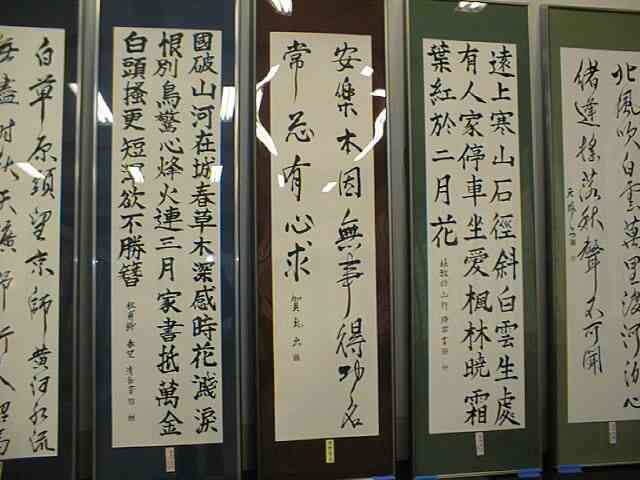 北風吹白雲萬里渡河汾心
緒逢搖落秋聲不可聞
遠上寒山石徑斜白雲生處
有人家停車坐愛楓林曉霜
葉紅於二月花
杜牧詩山行
安樂不因無事得功名
常忌有心求
國破山河在城春草木深感時花濺淚
恨別鳥驚心烽火連三月家書抵萬金
白頭搔更短渾欲不勝簪
杜甫詩 春望
白草原頭望京師黃河水流
無盡時秋天曠野行人絕馬